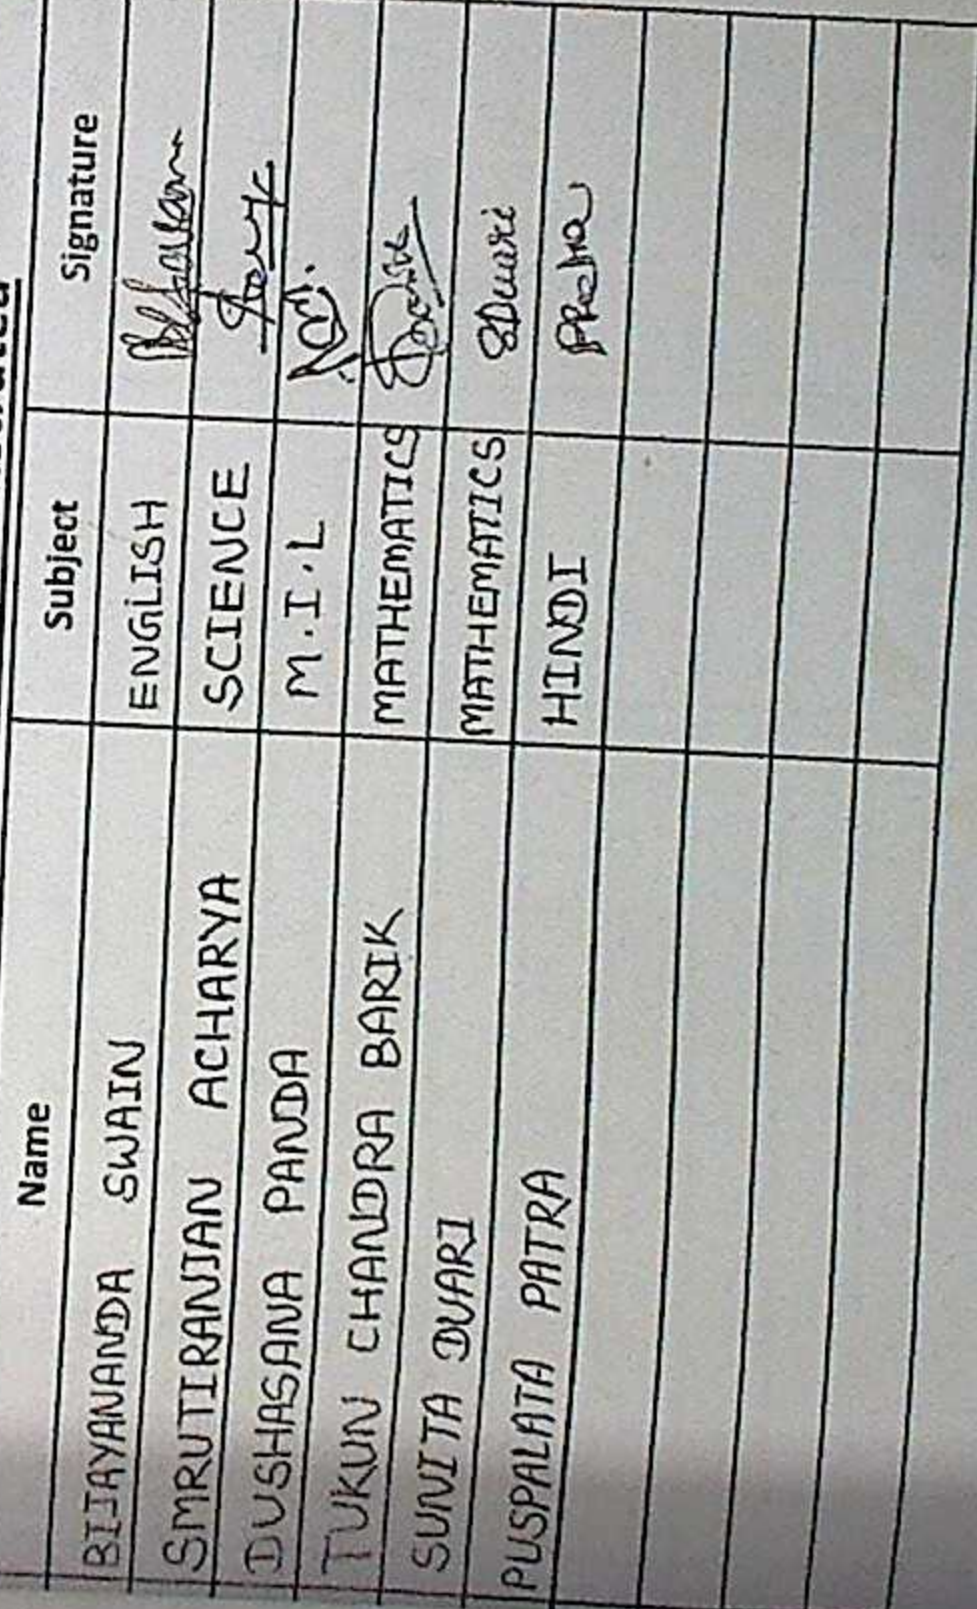 Name Subject Signature
BIJAYANANDA SWAIN ENGLISH
SMRUTIRANJAN ACHARYA SCIENCE
DUSHASANA PANDA M.I.L
TUKUN CHANDRA BARIK MATHEMATICS
SUNITA DUARI MATHEMATICS SDuari
PUSPALATA PATRA HINDI